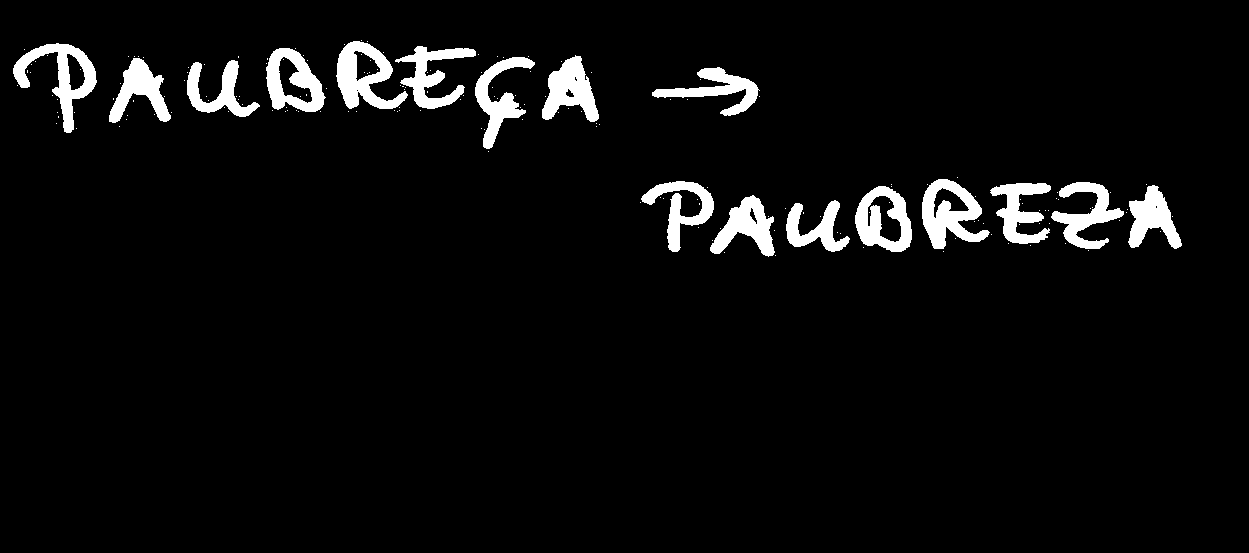 PAUBREÇA →
PAUBREZA